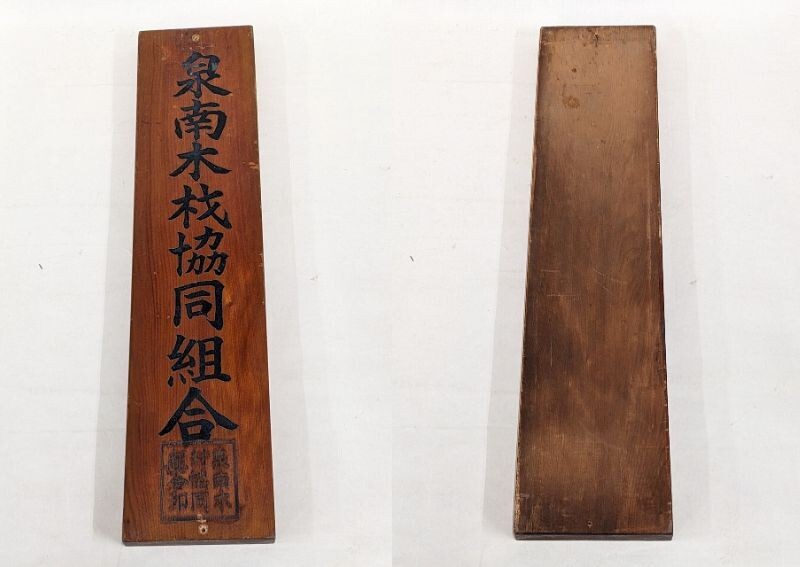 泉南木材協同組合
泉南木
材協同
組合印